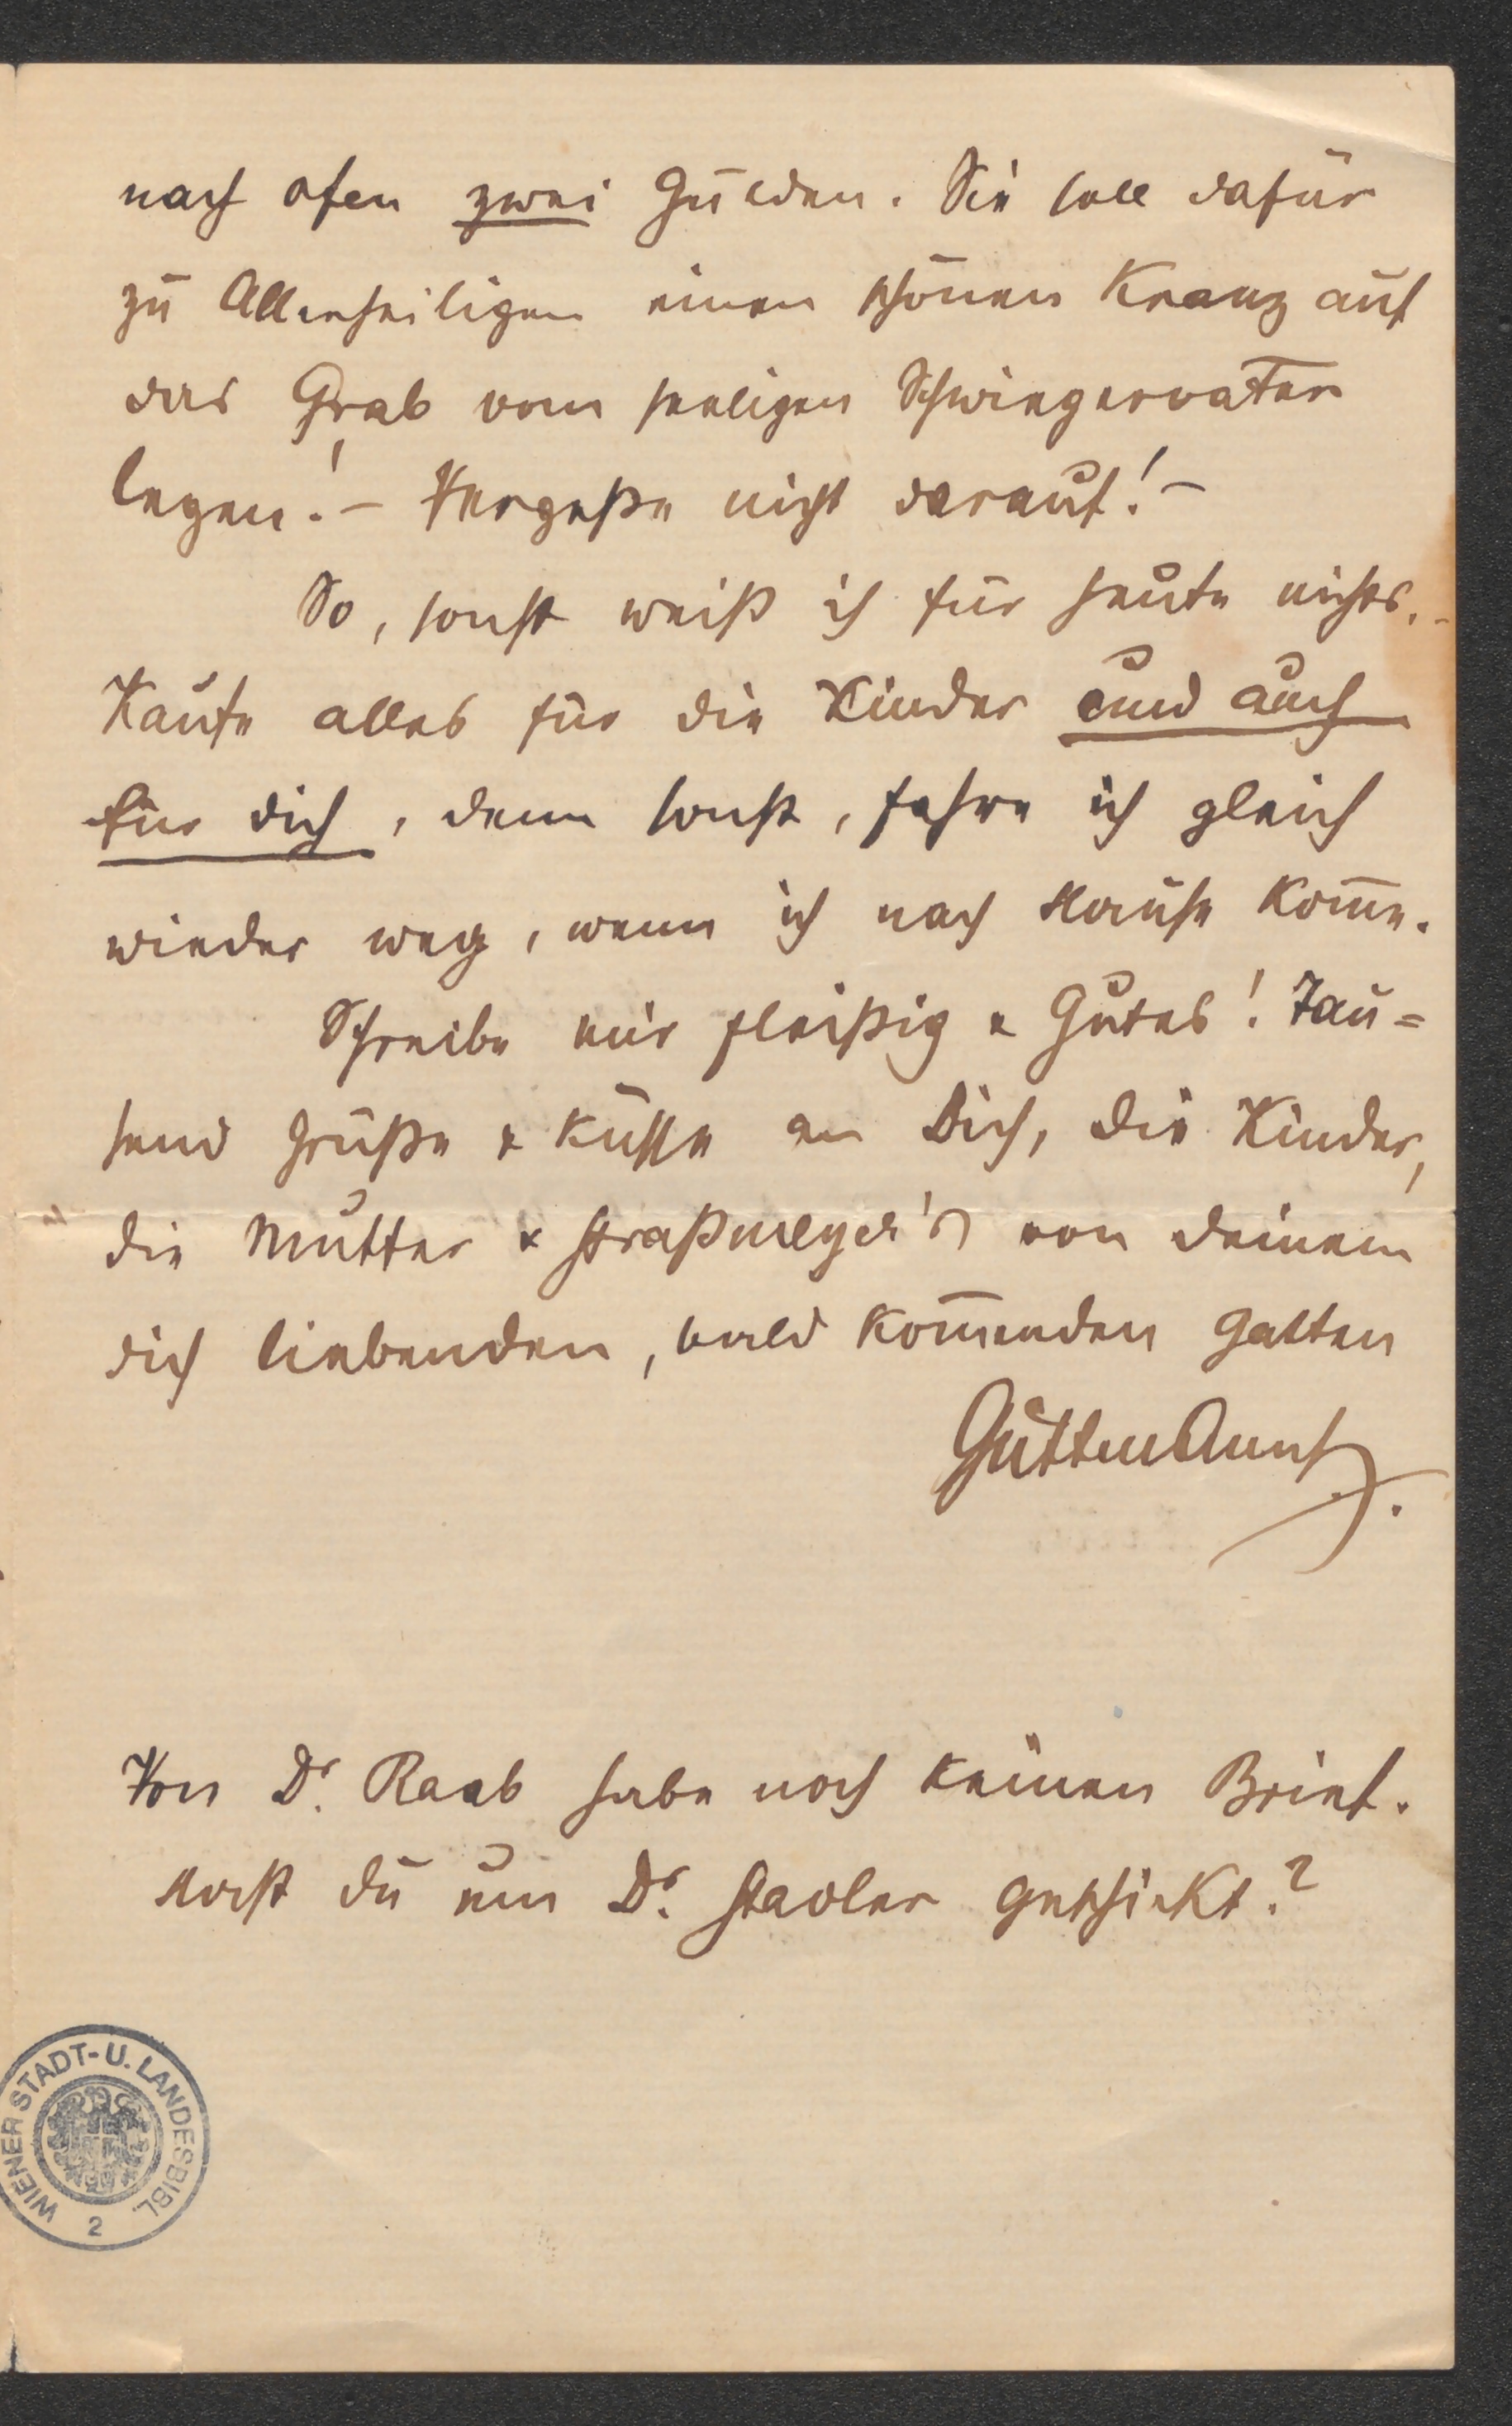 nach Ofen zwei Gulden. Sie soll dafür
zu Allerheiligen einen schönen Kranz auf
das Grab vom seeligen Schwiegervater
legen! – Vergeße nicht darauf! –
So, sonst weiß ich für heute nichts. –
Kaufe alles für die Kinder und auch
für dich, denn sonst, fahre ich gleich
wieder weg, wenn ich nach Hause kom̅e.
Schreibe mir fleißig & Gutes! Tau=
send Grüße & Küsse an Dich, die Kinder,
die Mutter & Straßmeyer's von deinem
dich liebenden, bald kom̅enden Gatten
Guttmann
Von Dr. Raab habe noch keinen Brief.
Hast du um Dr. Stadler geschickt?
WIENER STADT- U. LANDESBIBL.
2